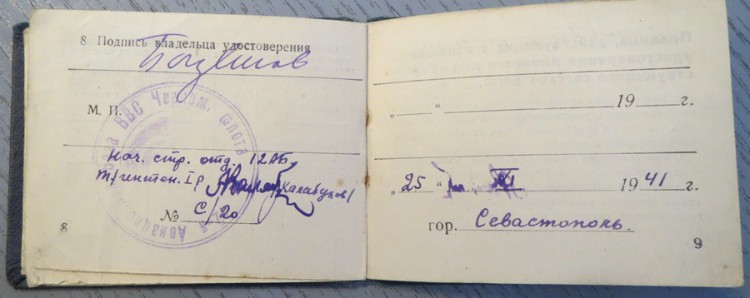 8. Подпись владельца удостоверения
М. П.
ВВС Черном. флота
Нач. стр. отд. 12 АБ
Т/интен. I р
/Калабухов/
№ С/20
8
„ “ 19 г.
„25“ XI 1941 г.
гор. Севастополь.
9